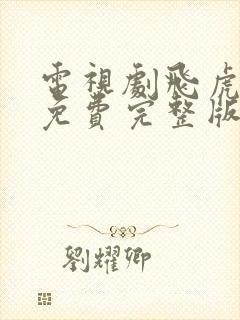 電視劇飛虎
免費完整版
劉耀卿